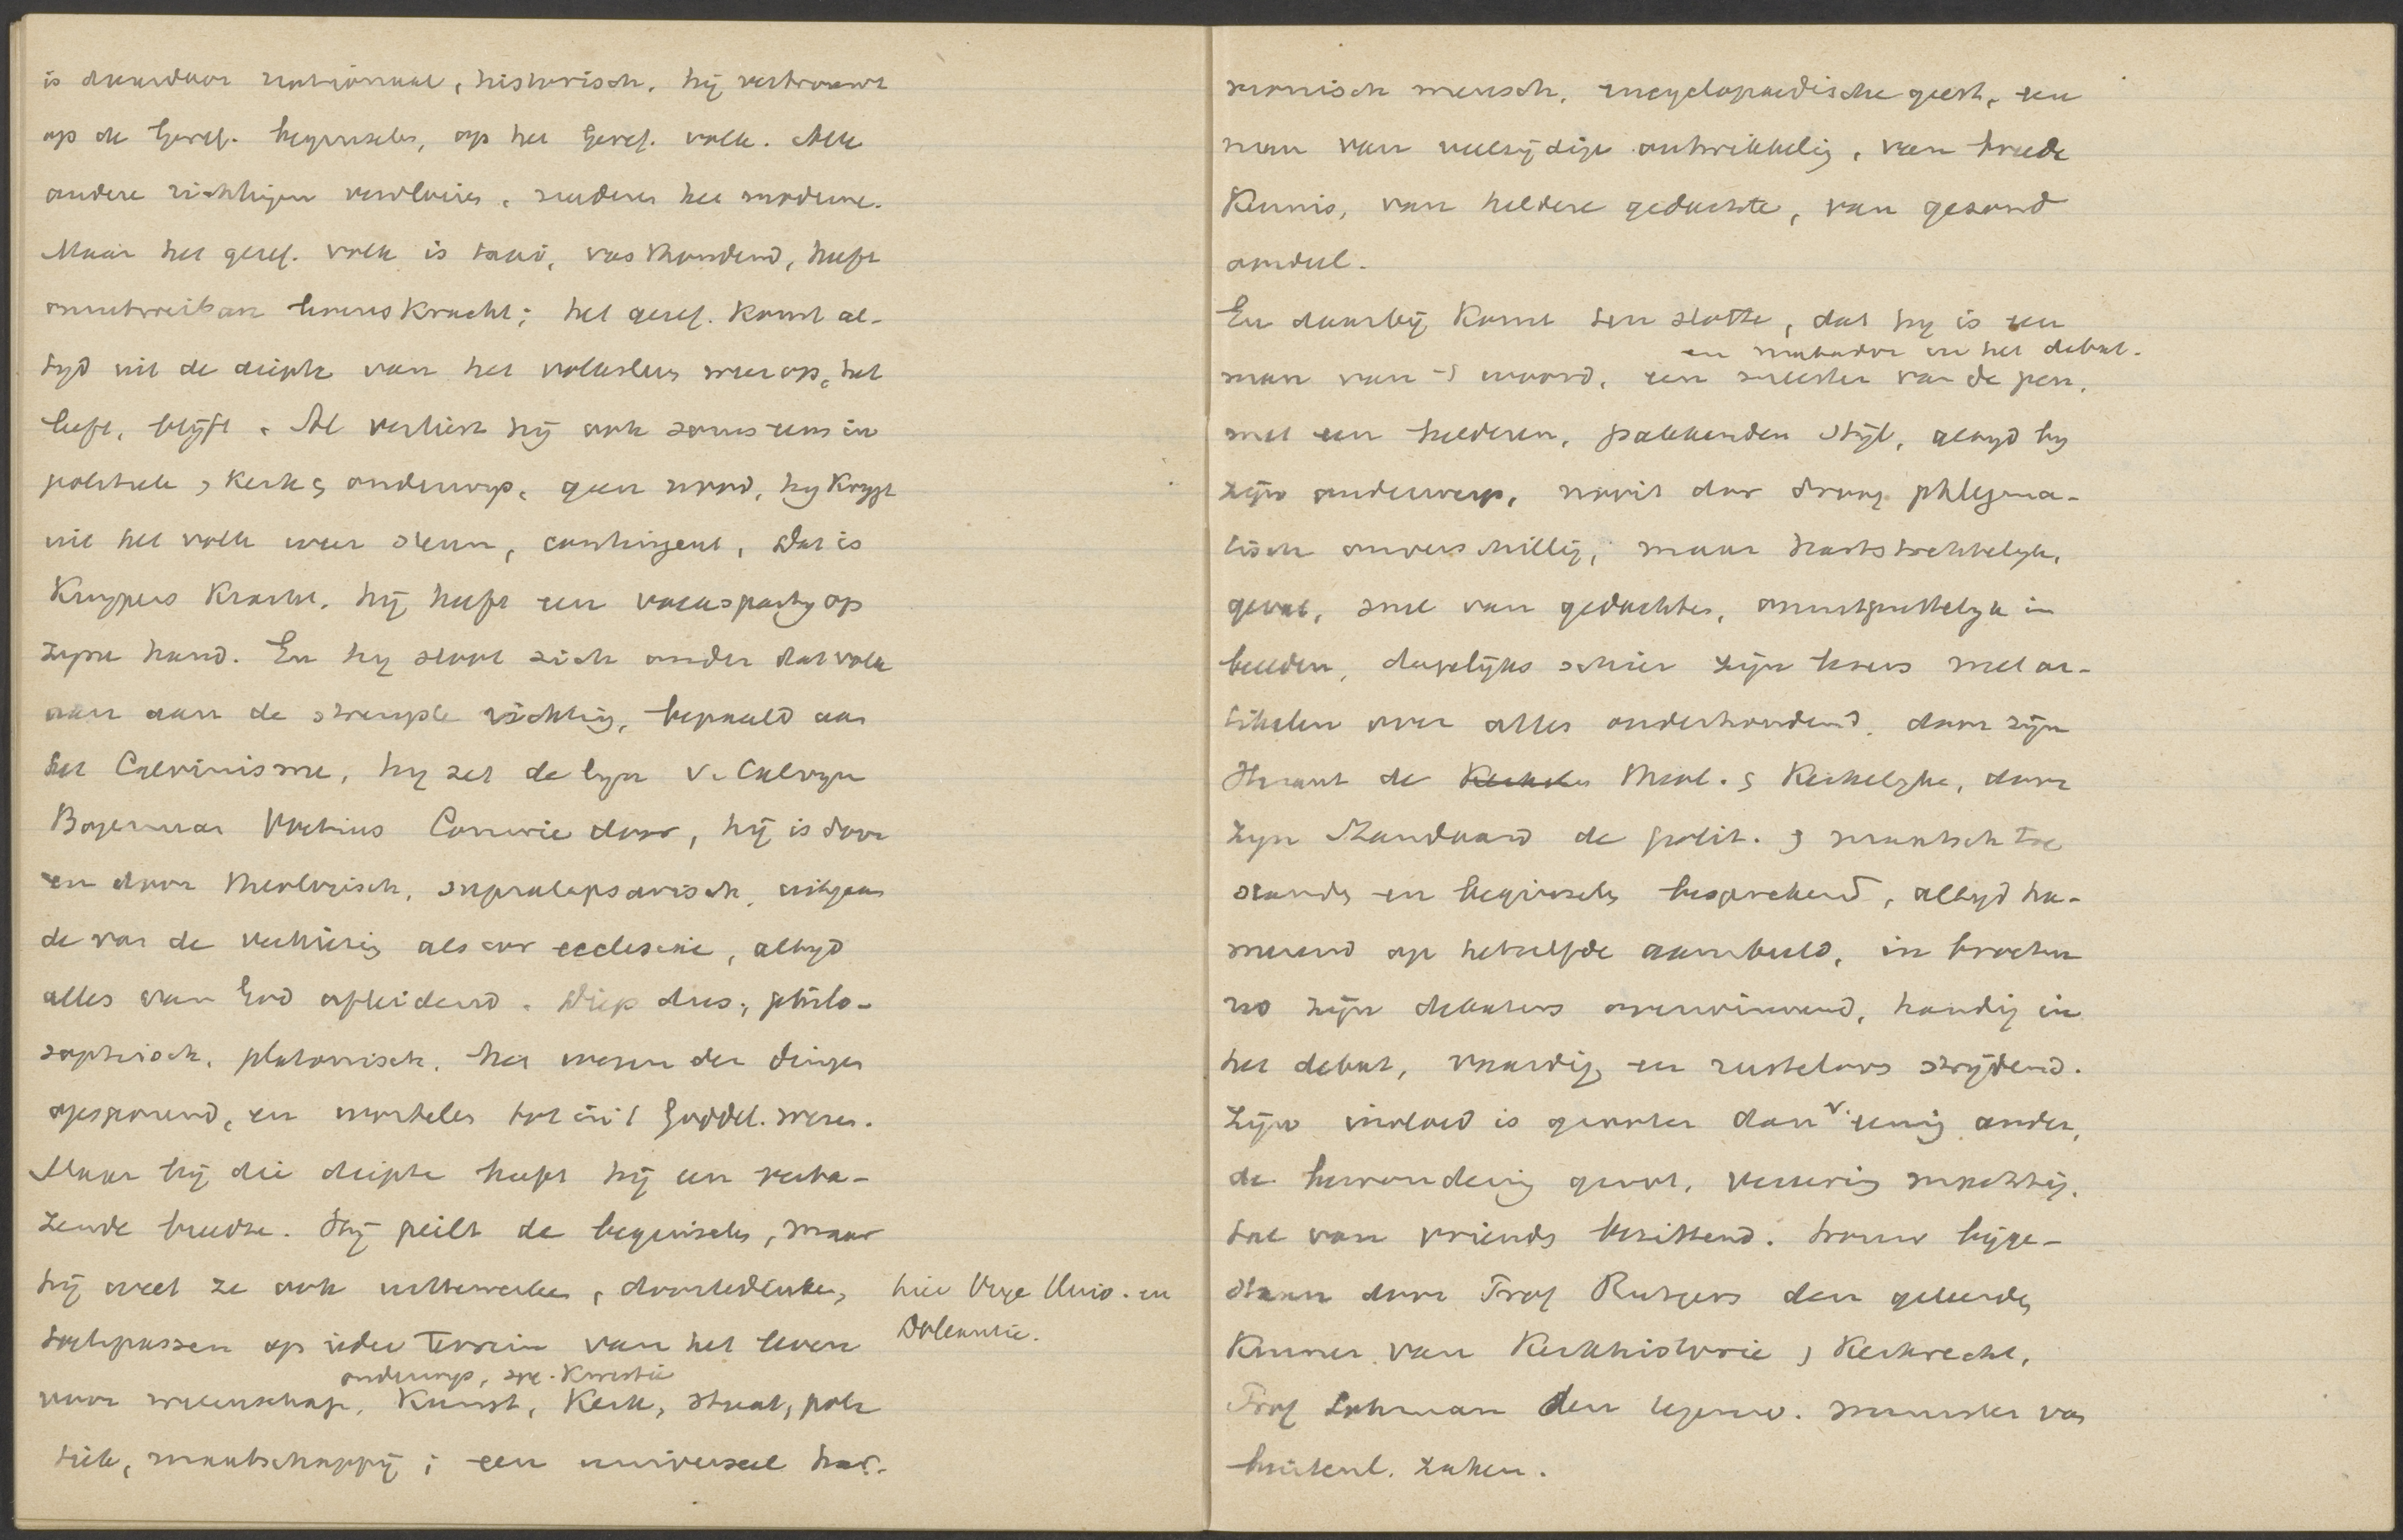 is daardoor nationaal, historisch. hij vertrouwt
op de Geref. beginselen, op het Geref. volk. Alle
andere richtingen vervloeien, naderen het moderne.
Maar het geref. volk is taai, vasthoudend, heeft
onuitroeibare levenskracht; het geref. komt al-
tijd uit de diepte van het volksleven weer op, het
leeft, blijft. Al verliest hij ook soms eens in
politiek, kerk, onderwijs, geen nood, hij krijgt
uit het volk weer steun, contingent, dat is
Kuypers kracht. hij heeft een volkspartij op
zijne hand. En hij sloot zich onder dat volk
aan aan de strengste richting, bepaald aan
het Calvinisme, hij zet de lijn v. Calvijn
Bogerman Voetius Comrie door, hij is door
en door theologisch, supralapsarisch, uitgaan
de van de verkiezing als cor ecclesiae, altijd
alles van God afleidend. Diep dus, philo-
sophisch, platonisch, het wezen der dingen
opsporend, en wortelen tot in 't Goddel. wezen.
Maar bij die diepte heeft hij een verba-
zende breedte. Hij peilt de beginselen, maar
hij weet ze ook uittewerken, doortedenken,
hier Vrije Univ. en
Doleantie.
toetepassen op ieder terrein van het leven
onderwijs, soc. kwestie
voor wetenschap, Kunst, Kerk, staat, poli
tiek, maatschappij; een universeel har-
monisch mensch, encyclopaedische geest, een
man van veelzijdige ontwikkeling, van breede
Kennis, van heldere gedachte, van gezond
oordeel.
En daarbij komt ten slotte, dat hij is een
een matador in het debat.
man van 't woord, een meester van de pen,
met een helderen, pakkenden stijl, altijd bij
zijn onderwerp, nooit dor droog phlegma-
tisch onverschillig, maar hartstochtelijk,
gevat, snel van gedachten, onuitputtelijk in
beelden, dagelijks schier zijn lezers met ar-
tikelen over alles onderhoudend, door zijn
Heraut de Theol. & Kerkelijke, door
zijn Standaard de polit. & maatsch toe
standen en beginselen besprekend, altijd ha-
merend op hetzelfde aambeeld, in brochu
res zijn debaters overwinnend, handig in
het debat, vaardig en rusteloos strijdend.
Zijn invloed is grooter dan v. eenig ander,
de bewondering groot, machtig.
tal van vrienden bezittend. trouw bijge-
staan door Prof Rutgers den geleerden
Kenner van Kerkhistorie & Kerkrecht,
Prof Lohman den tegenw. minister van
buitenl. zaken.